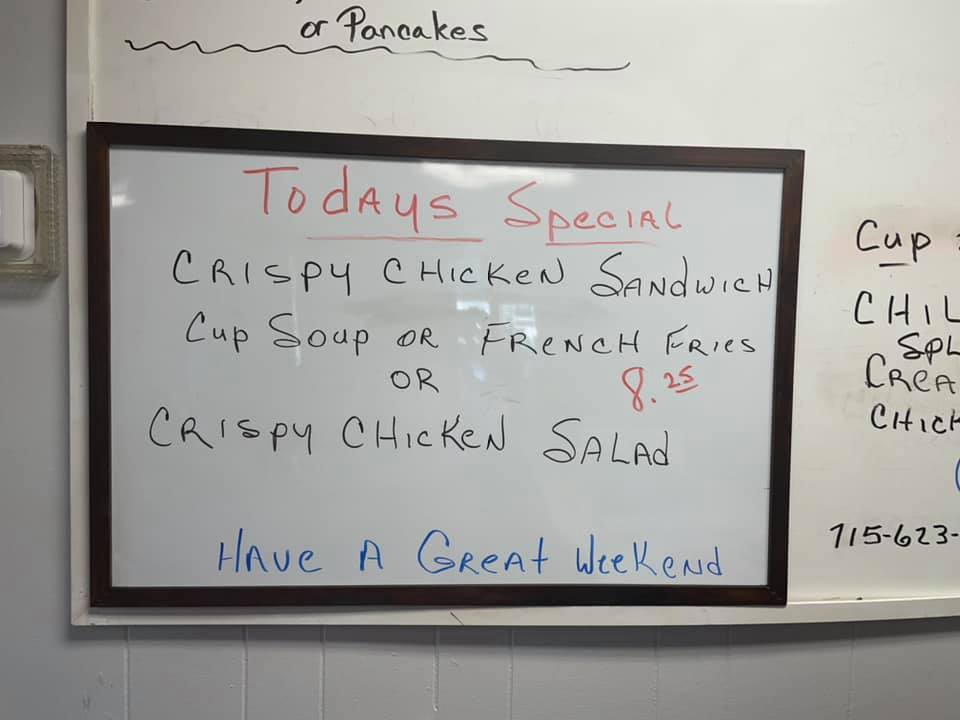 or Pancakes
Todays Special
Crispy Chicken Sandwich
Cup Soup or French Fries
or 8.25
Crispy Chicken Salad
Have A Great Weekend
Cup
715-623-